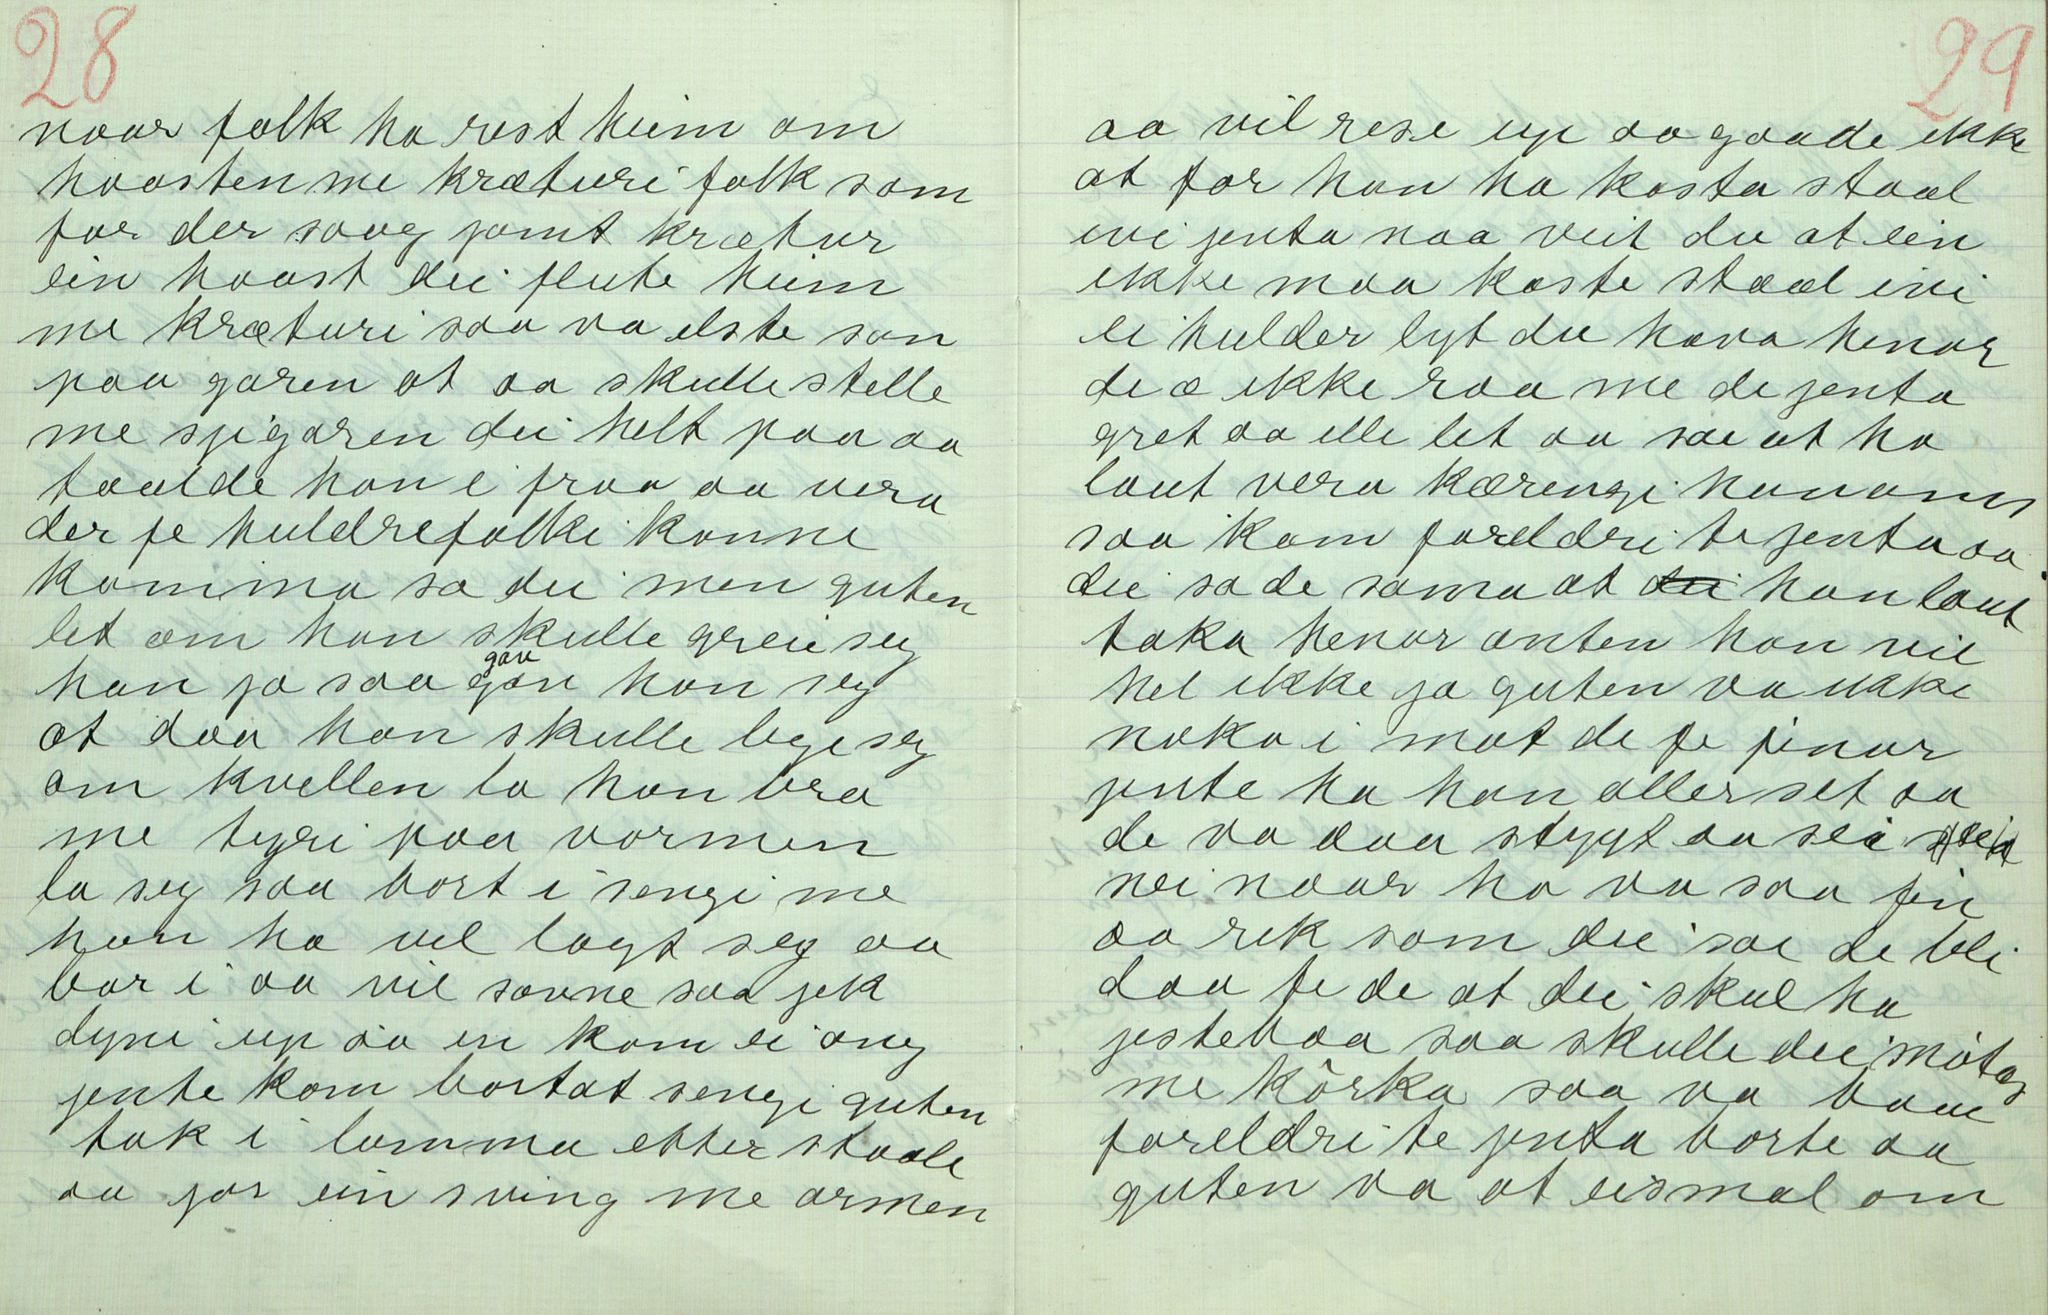 28
naar folk ha rest heim om
haasten me kræturi folk som
for der saag jamt krætur
ein haast dei flute heim
me kræturi saa va elste son
paa garen at aa skulle stelle
me spigaren dei helt paa aa
taalde han i fraa aa vera
der fe huldrefolki konne
komma sa dei men guten
let om han skulle greie seg
han ja saa gav gav han seg
at daa han skulle legje seg
om kvellen la han bra
me tyri paa varmen
la seg saa bort i sengi me
han ha vel lagt seg aa
bar i aa vil sovne saa jek
dyni up aa en kom ei ong
jente kom bortat sengi guten
tok i lomma etter staale
aa jor ein sving me armen
29
aa vil rese up aa gaade ikke
at for han ha kasta staal
ivi jenta naa veit du at ein
ikke maa kaste staal ivi
ei hulder lyt du hava henar
de æ ikke raa me de jenta
gret aa ille let aa sae at ho
laut vera kæringi hanoms
saa kom foreldri te jenta aa
dei sa de sama at dei han laut
taka henar anten han vil
hel ikke ja guten va ikke
noko i mot de fe finar
jente ha han aller set aa
de va daa stygt aa sei
nei naar ho va saa fin
aa rik som dei sae de bli
daa te de at dei skul ha
jestebaa saa skulle dei møtas
me kôrka saa va baae
foreldri te jenta borte aa
guten va at eismal om